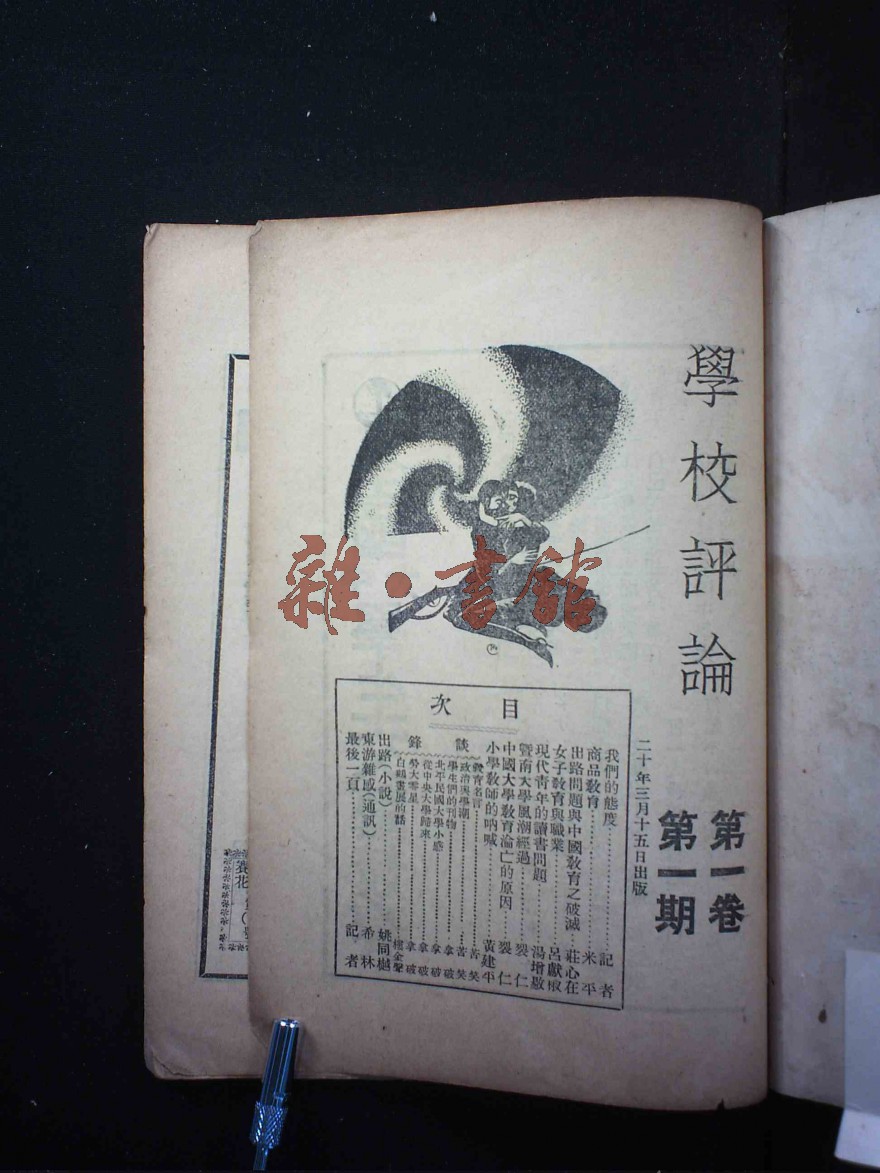 學校評論
第一卷
第一期
二十年三月十五日出版
目次
我們的態度……記者
商品教育……米平
出路問題與中國教育之破滅……莊心在
女子教育與職業……呂獻椒
現代青年的讀書問題……湯增敭
暨南大學風潮經過……裂仁
中國大學教育淪亡的原因……裂仁
小學教師的吶喊……黃建平
談鋒
教育名言……苦笑
政治與學潮……苦笑
學生們的刊物……拿破
北平民國大學小感……拿破
從中央大學歸來……拿破
勞大零星……拿破
白鵝畫展的話……金聲
出路(小說)……姚同樾
東游雜感(通訊)……希林
最後一頁……記者
雜·書館